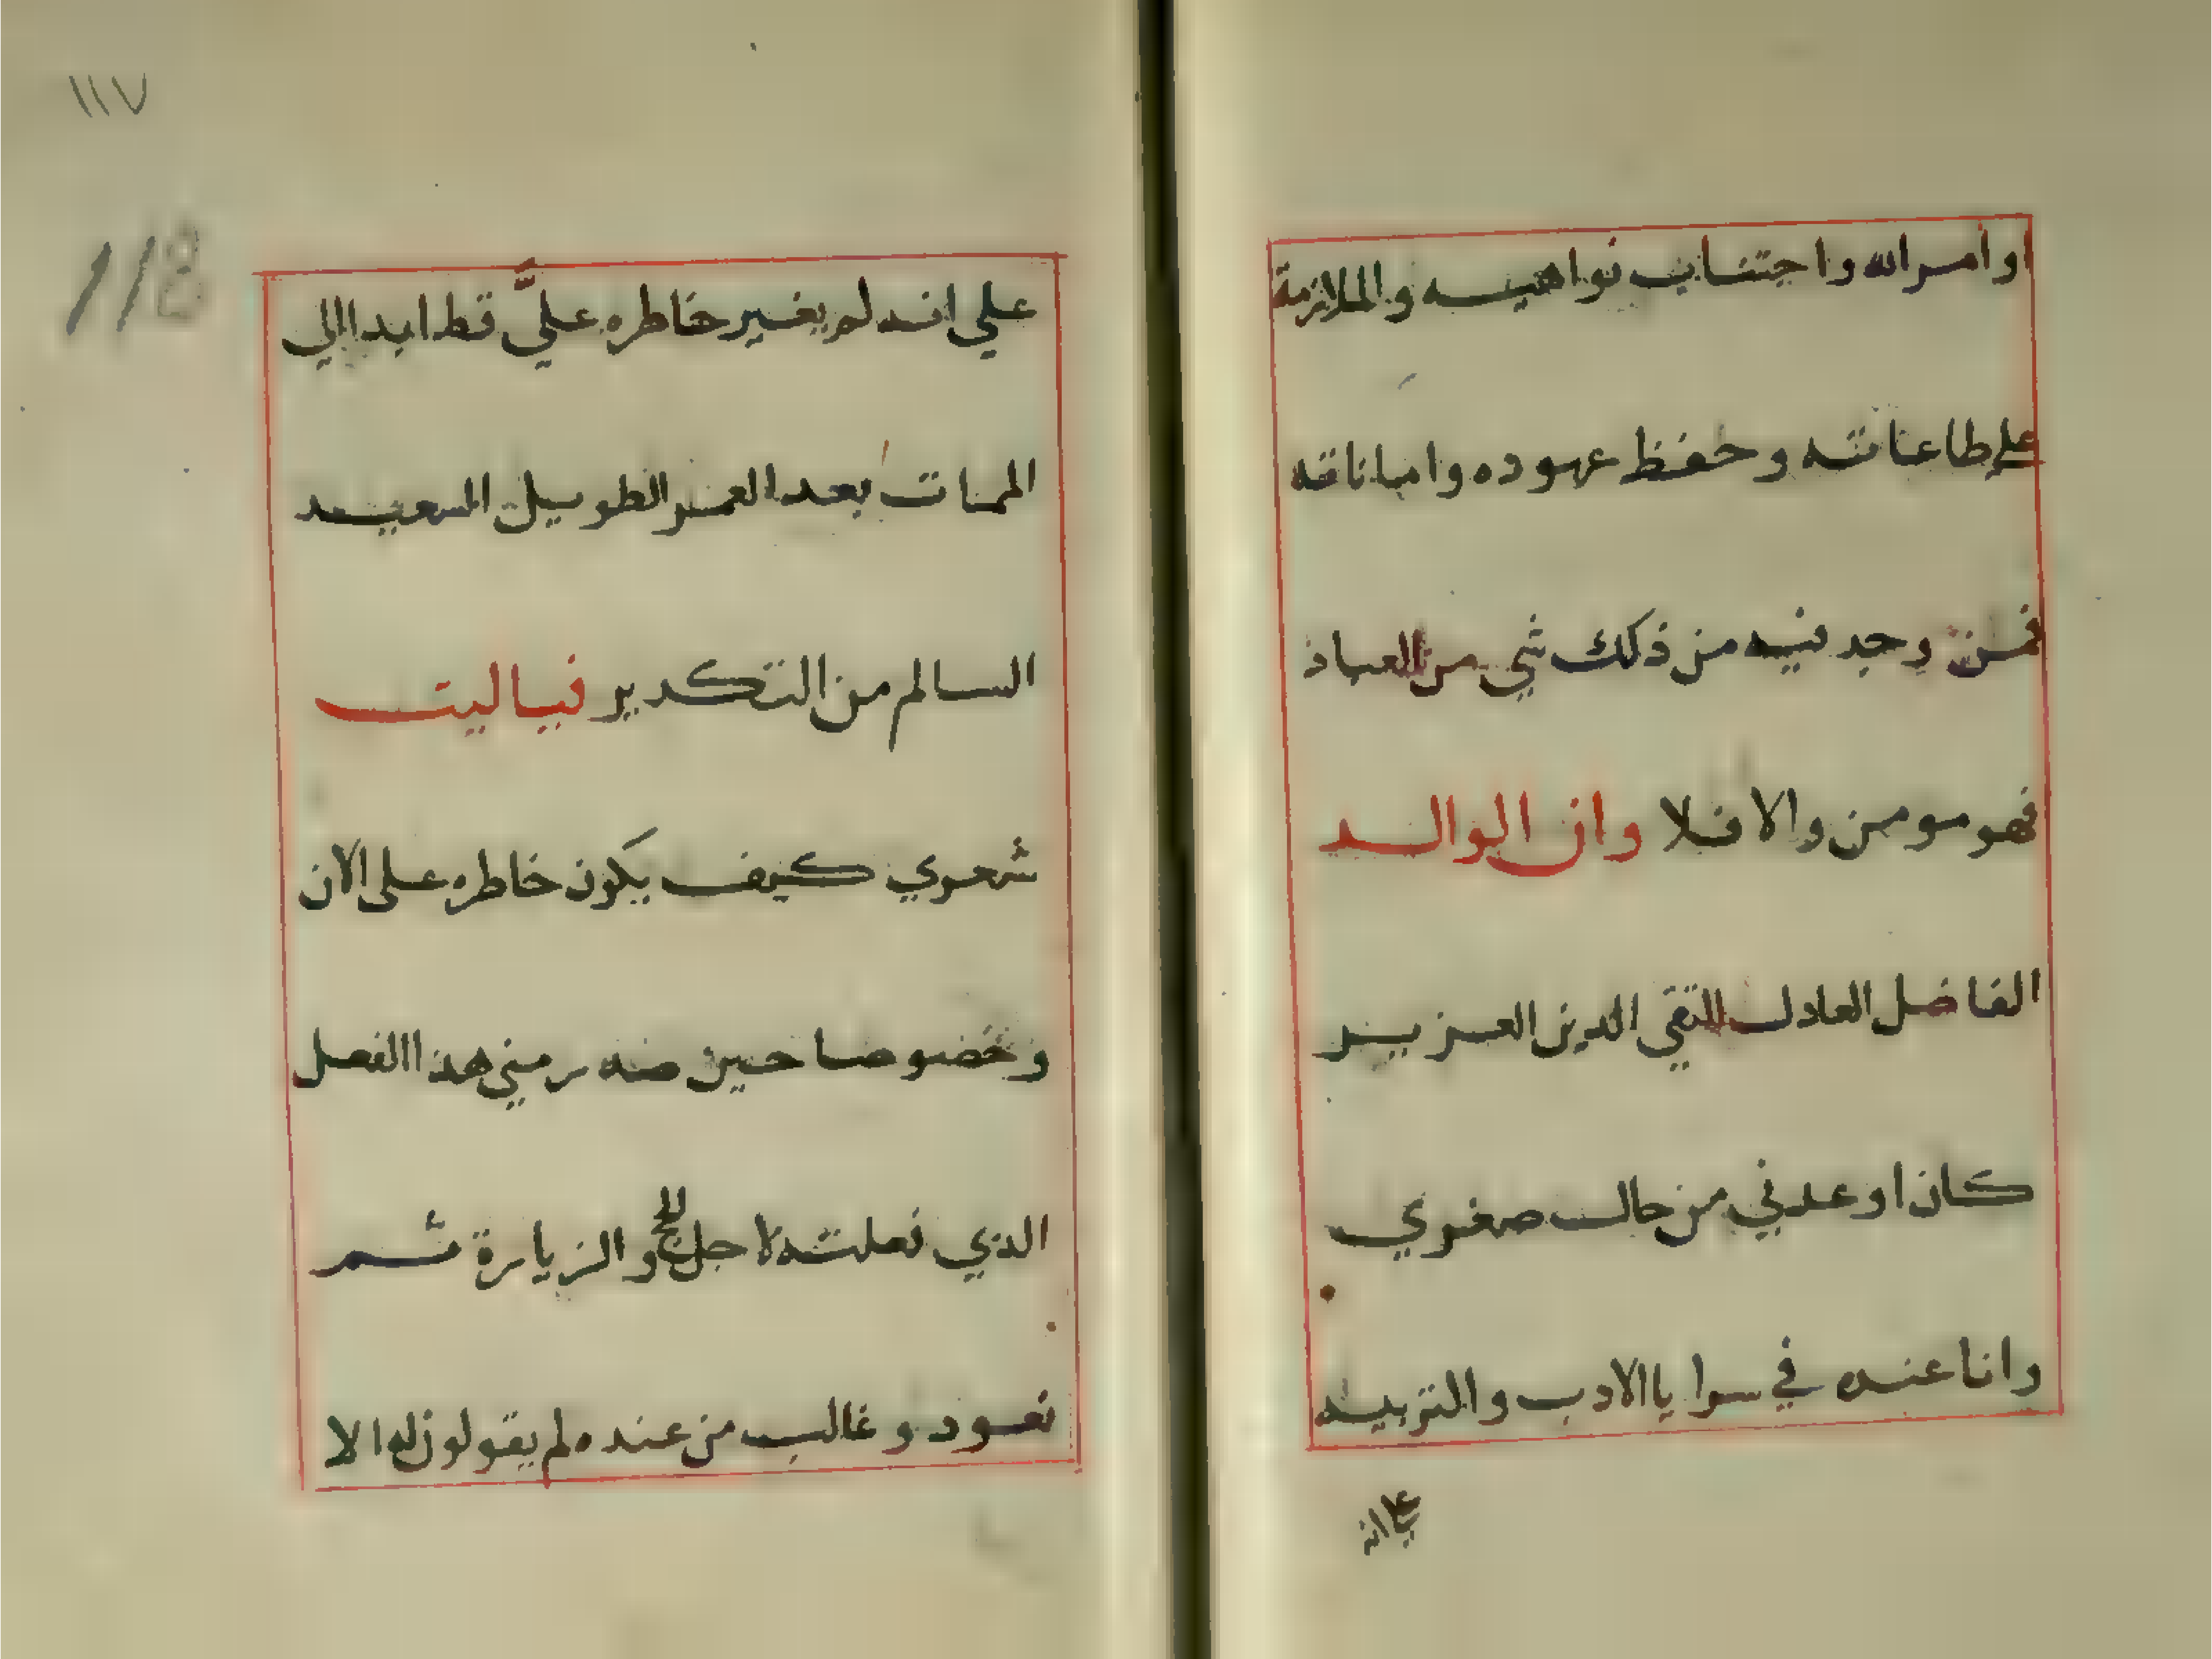 اوامر الله واجتناب نواهيه والملازمة
على طاعاته وحفظ عهوده واماناته
فمن وجد فيه من ذلك شي من العباد
فهو مومن والا فلا وان الوالد
الفاضل العادل التقي الدين العزيز
كان اوعدني من حال صغري
وانا عنده في سوايا الادب والتربيه
علي انه
١١٧
118
علي انه لم يغير خاطره عليَّ قط ابدا الي
الممات بعد العمر الطويل السعيد
السالم من التكدير فياليت
شعري كيف يكون خاطره على الان
وخصوصا حين صدر مني هذا الفصل
الذي فعلته لاجل الحج والزيارة ثم
نعود وغالب من عنده لم يقولون له الا